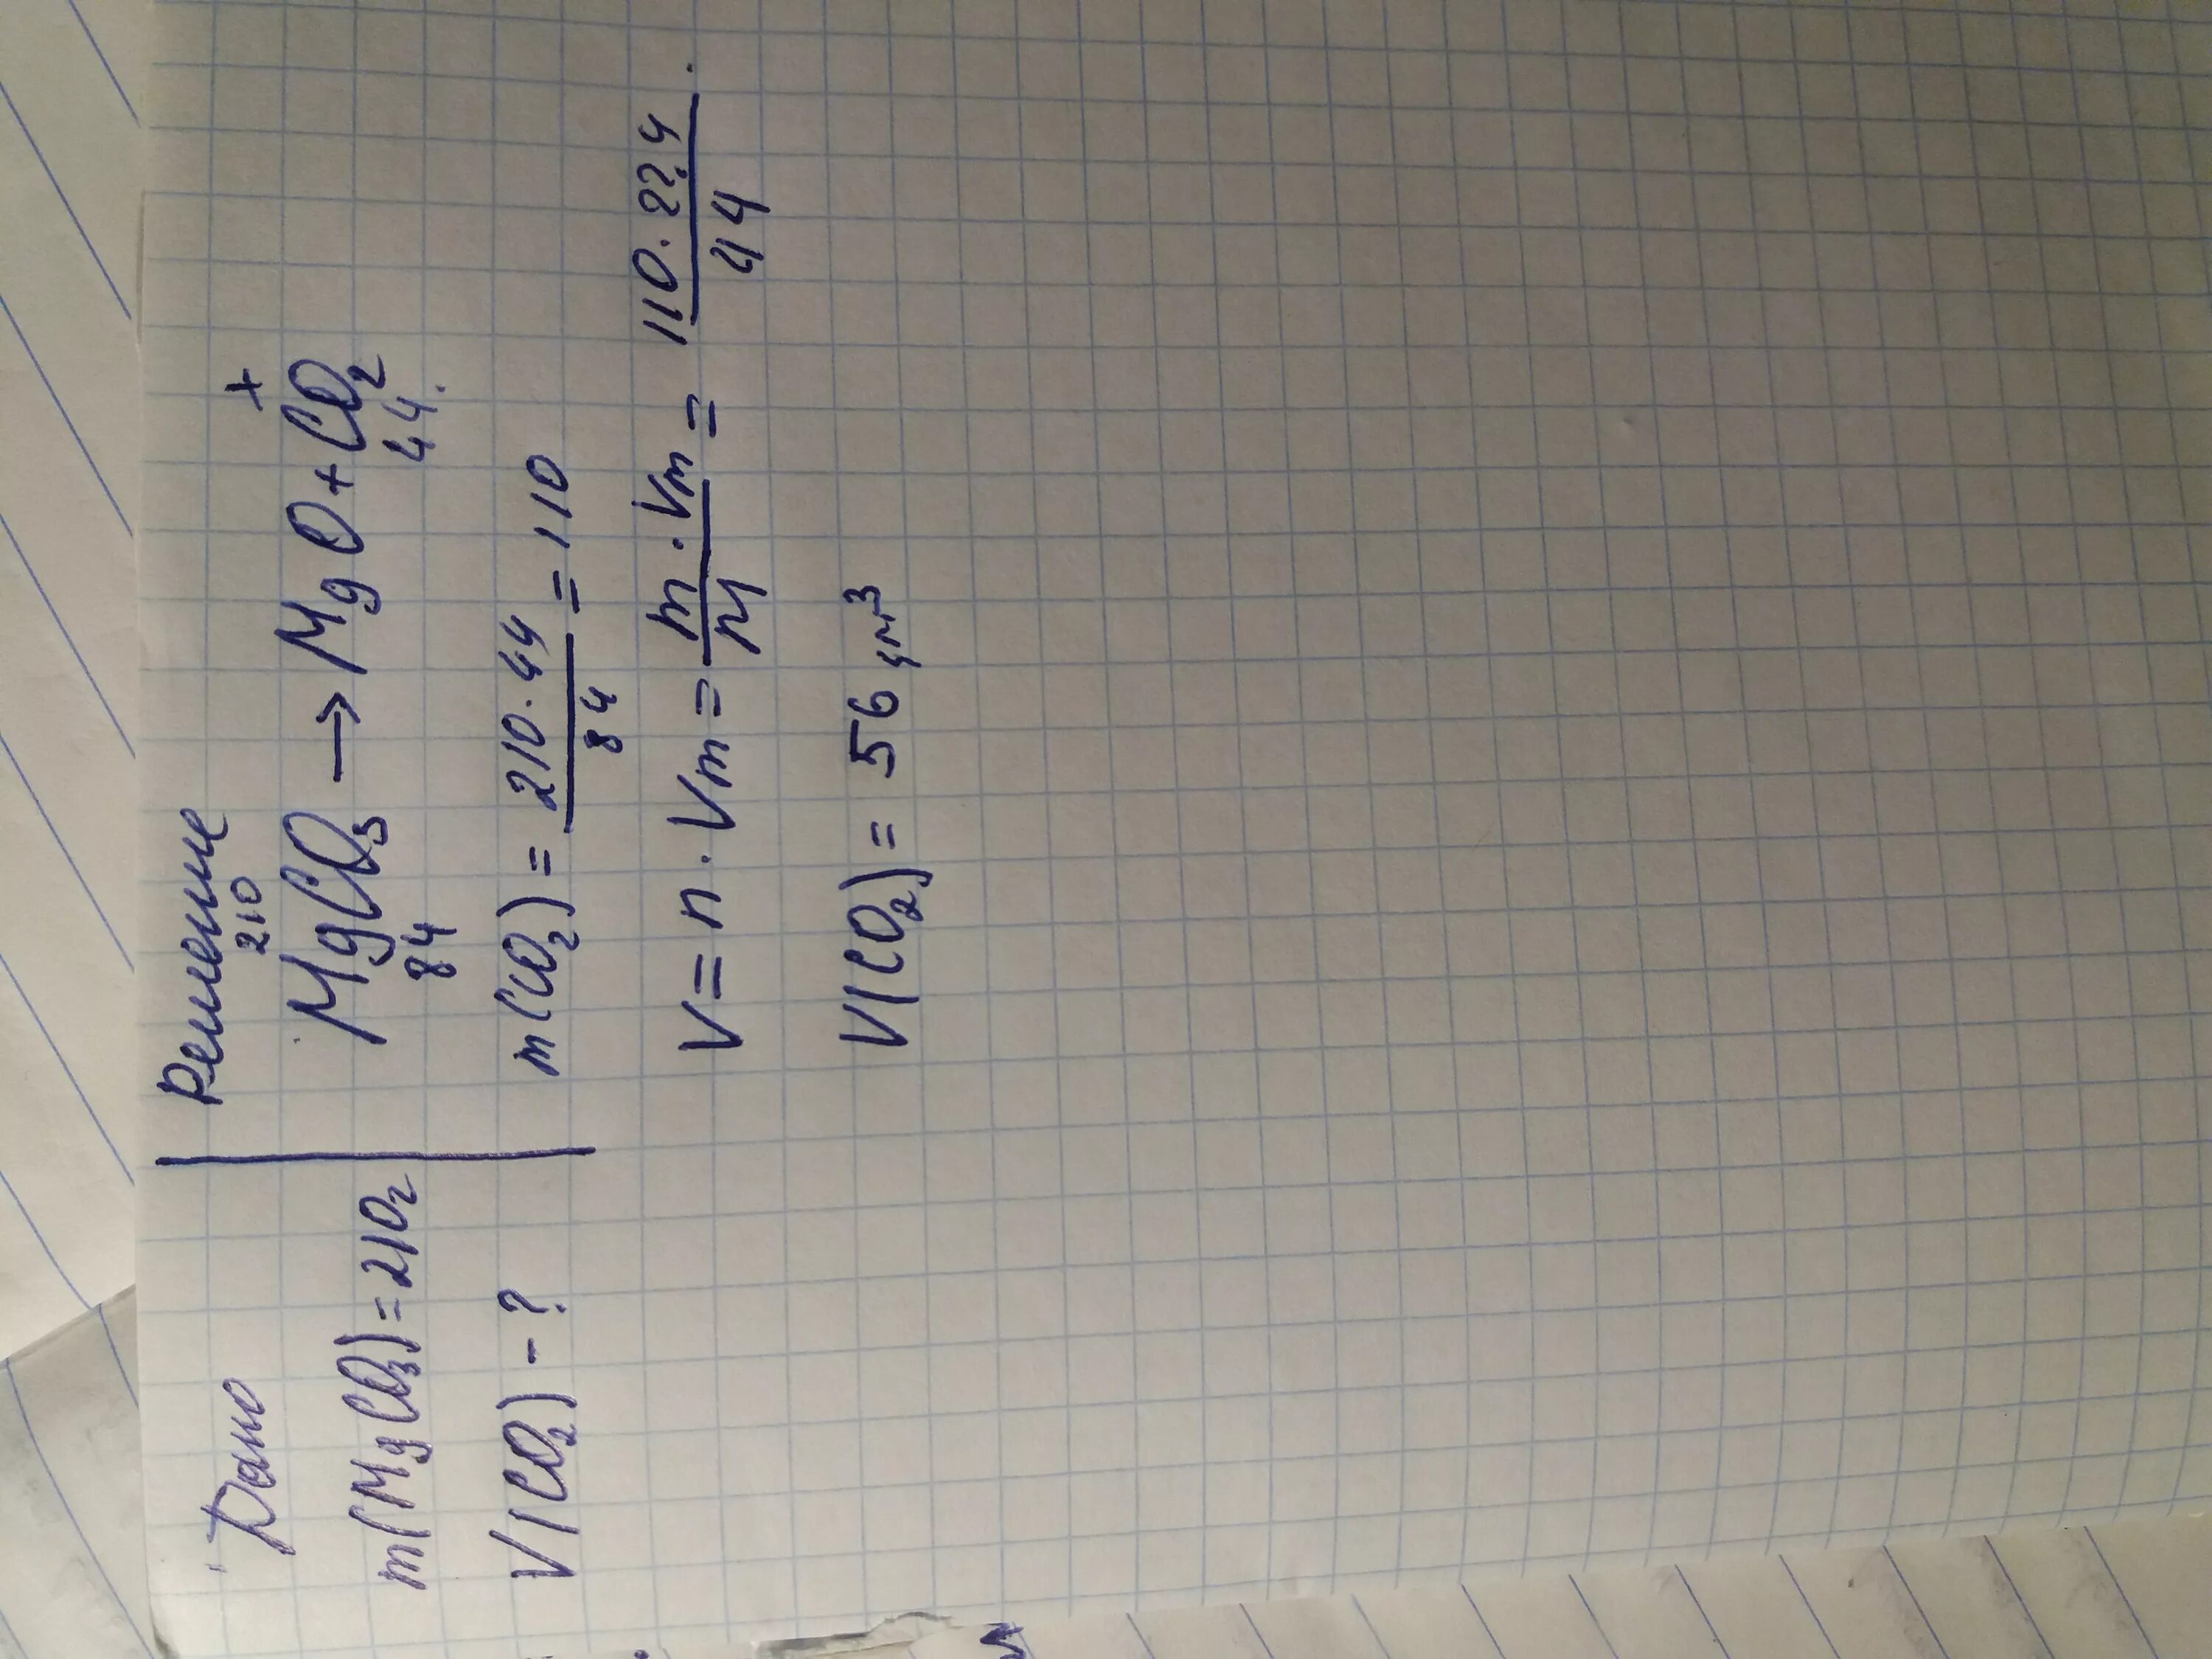 Дано
m(MgCO3)=210г
V(CO2) - ?
Решение
210 x
MgCO3 → MgO + CO2
84 44.
m(CO2) = 210·44 / 84 = 110
V = n · Vm = m · Vm / M = 110 · 22,4 / 44 .
V(CO2) = 56 дм3